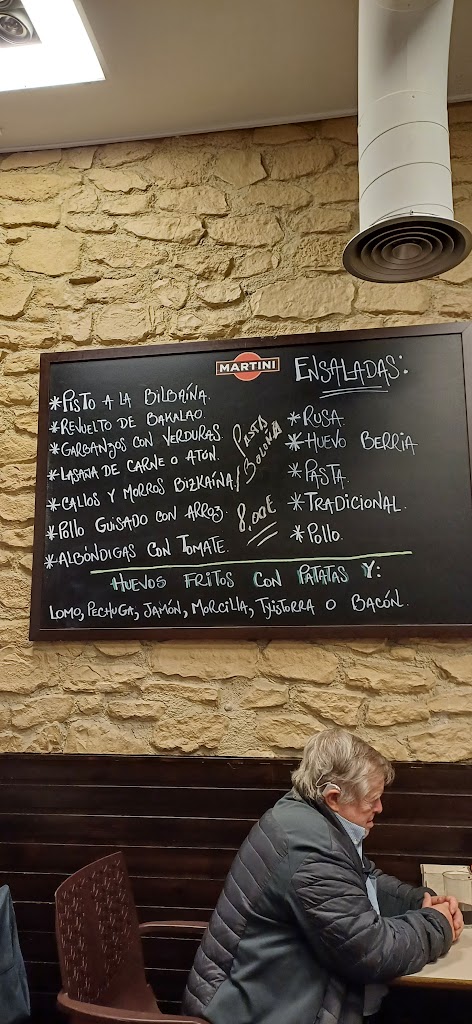 MARTINI
*PISTO A LA BILBAÍNA.
*REVUELTO DE BAKALAO.
*GARBANZOS CON VERDURAS
*LASAÑA DE CARNE O ATÚN.
*CALLOS Y MORROS BIZKAÍNA/
*POLLO GUISADO CON ARROZ.
*ALBÓNDIGAS CON TOMATE.
PASTA
BOLOÑA
8,00€
ENSALADAS:
*RUSA.
*HUEVO BERRIA
*PASTA.
*TRADICIONAL.
*POLLO.
HUEVOS FRITOS CON PATATAS Y:
LOMO, PECHUGA, JAMÓN, MORCILLA, TXISTORRA O BACÓN.